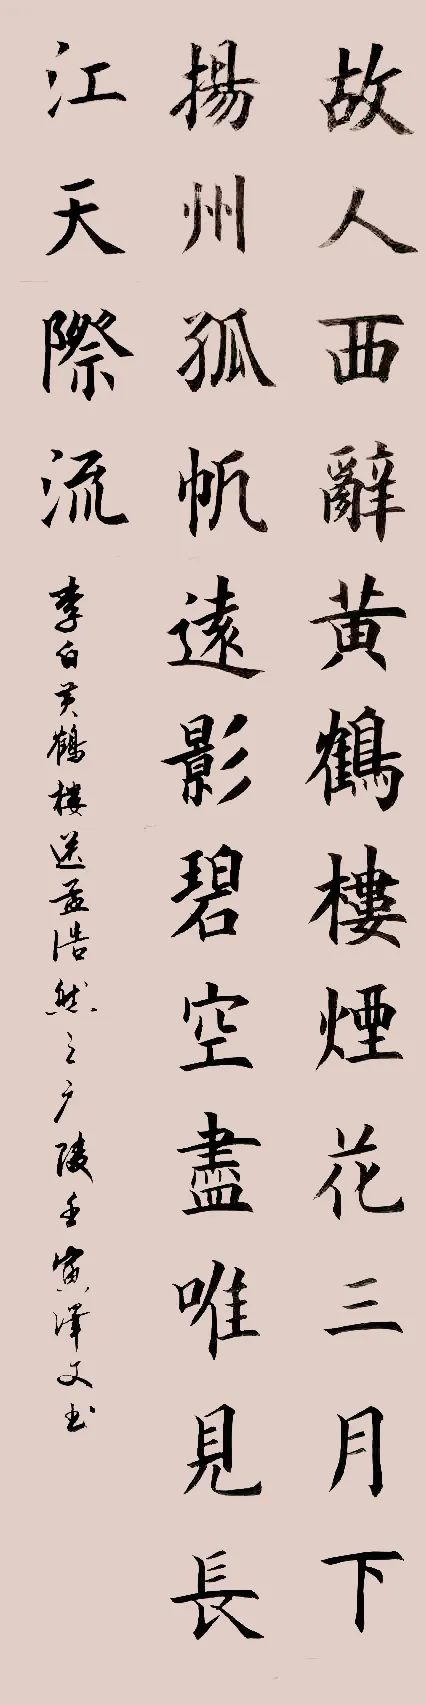 故人西辭黃鶴樓煙花三月下
揚州孤帆遠影碧空盡唯見長
江天際流
李白黃鶴樓送孟浩然之广陵壬寅澤文书